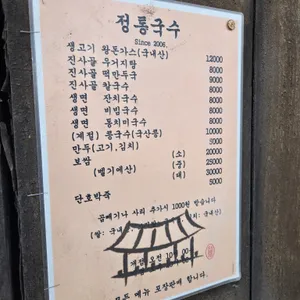 정통국수
Since 2006.
생고기 왕돈가스(국내산) 12000
진사골 우거지탕 8000
진사골 떡만두국 9000
진사골 칼국수 8000
생면 잔치국수 8000
생면 비빔국수 8000
생면 동치미국수 8000
(계절) 콩국수(국산콩) 10000
만두(고기,김치) 5000
보쌈 (소) 20000
(중) 25000
(대) 30000
단호박죽 5000
곱빼기나 사리 추가시 1000원 받습니다
모든 메뉴 포장판매 합니다.